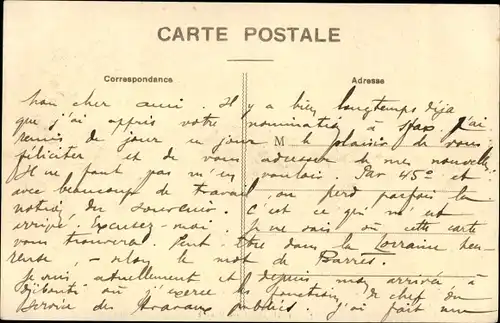 CARTE POSTALE
Correspondance
Adresse
Mon cher ami. Il y a bien longtemps déjà
que j'ai appris votre nomination à Sfax. J'ai
remis de jour en jour M le plaisir de vous
féliciter et de vous adresser de mes nouvelles.
Il ne faut pas m'en vouloir. Par 45° et
avec beaucoup de travail, on perd parfois la
notion du souvenir. C'est ce qui m'est
arrivé. Excusez-moi. Je ne sais où cette carte
vous trouvera. Peut-être dans la Lorraine heu-
reuse, selon le mot de Barrès.
Je suis actuellement et depuis mon arrivée à
Djibouti où j'exerce les fonctions de chef du
Service des travaux publics. J'ai fait une